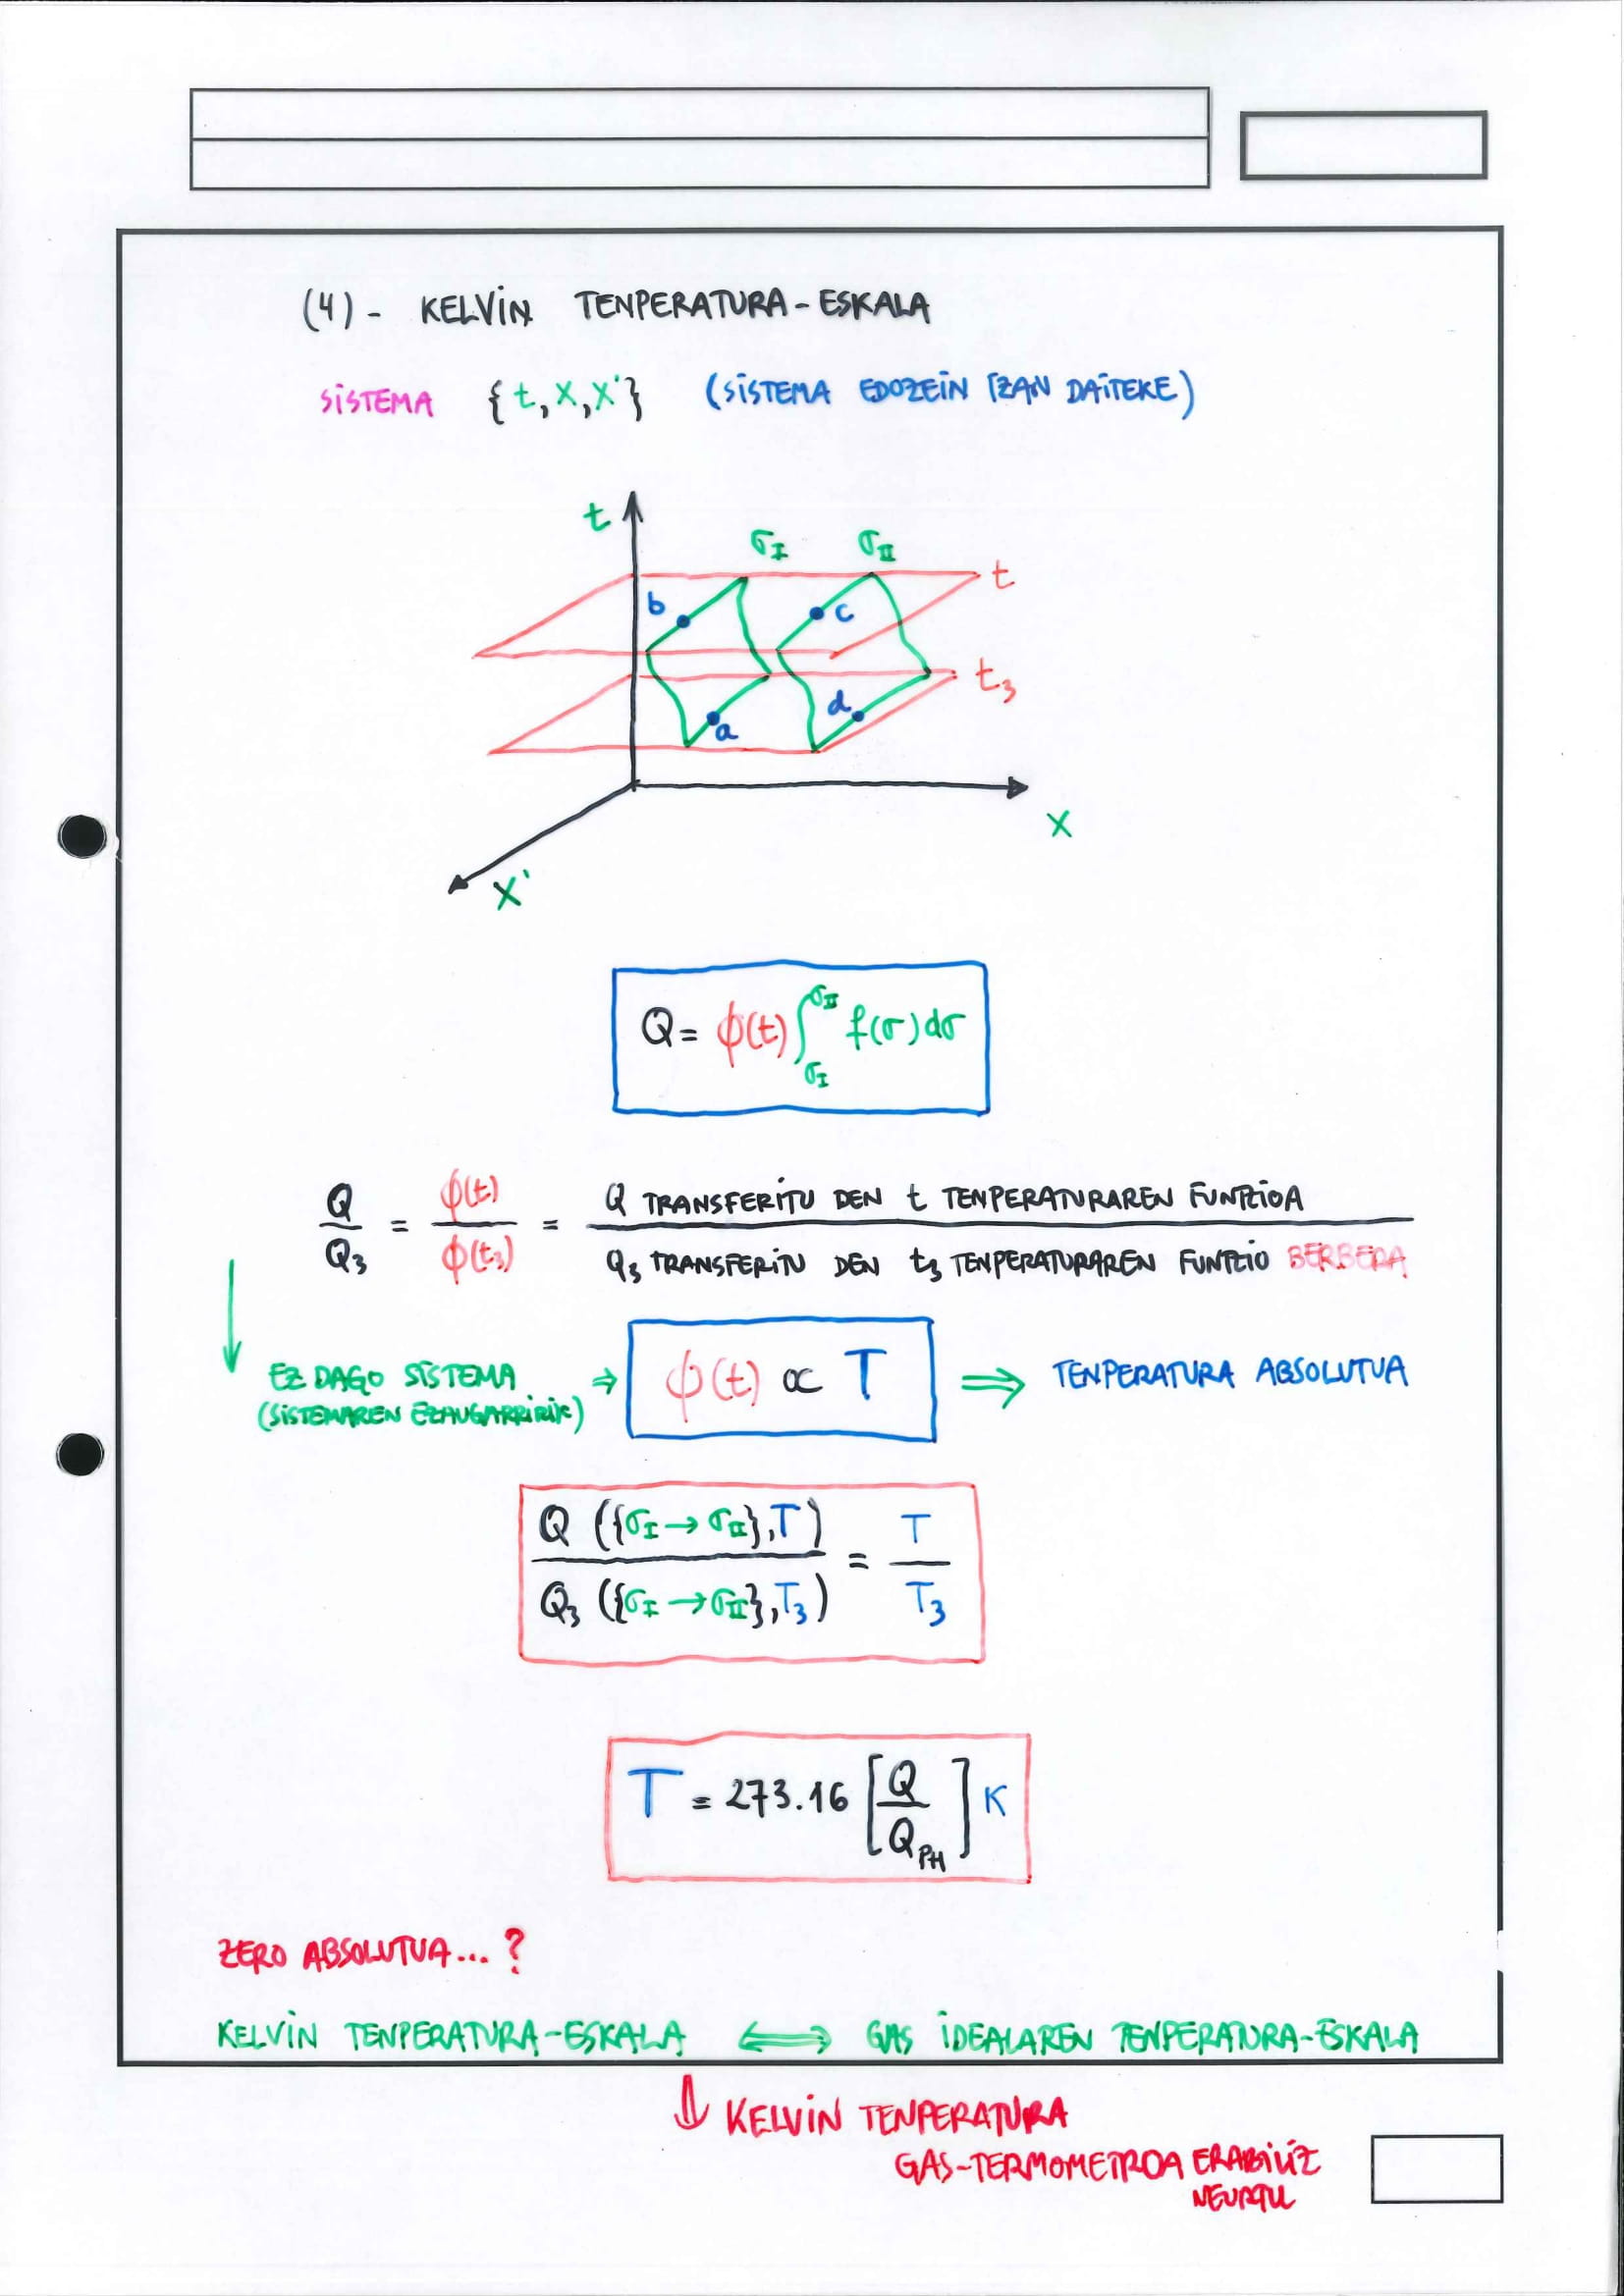 (4) - KELVIN TENPERATURA-ESKALA
SISTEMA {t, X, X'} (SISTEMA EDOZEIN IZAN DAITEKE)
t
σI σII
t
b c
t3
d
a
X
X'
Q = ϕ(t) ∫σI^σII f(σ)dσ
Q/Q3 = ϕ(t)/ϕ(t3) = Q TRANSFERITU DEN t TENPERATURAREN FUNTZIOA / Q3 TRANSFERITU DEN t3 TENPERATURAREN FUNTZIO BERBERA
↓ EZ DAGO SISTEMA ⇒ ϕ(t) ∝ T ⇒ TENPERATURA ABSOLUTUA
(SISTEMAREN EZAUGARRIRIK)
Q ({σI → σII}, T) / Q3 ({σI → σII}, T3) = T / T3
T = 273.16 [Q/QPH] K
ZERO ABSOLUTUA...?
KELVIN TENPERATURA-ESKALA ⟺ GAS IDEALAREN TENPERATURA-ESKALA
⇓ KELVIN TENPERATURA
GAS-TERMOMETROA ERABILIZ
NEURTU